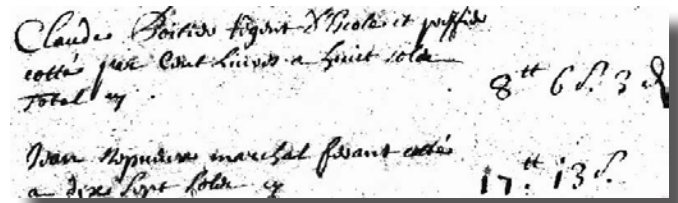 Claude Poitier Regent d'Ecole et
cotté par Cent livres a huict solz
Total cy 8tt 6 s. 3 d
Jean marechal ferant cotté
a dixe sept solz cy 17.tt 13 s.